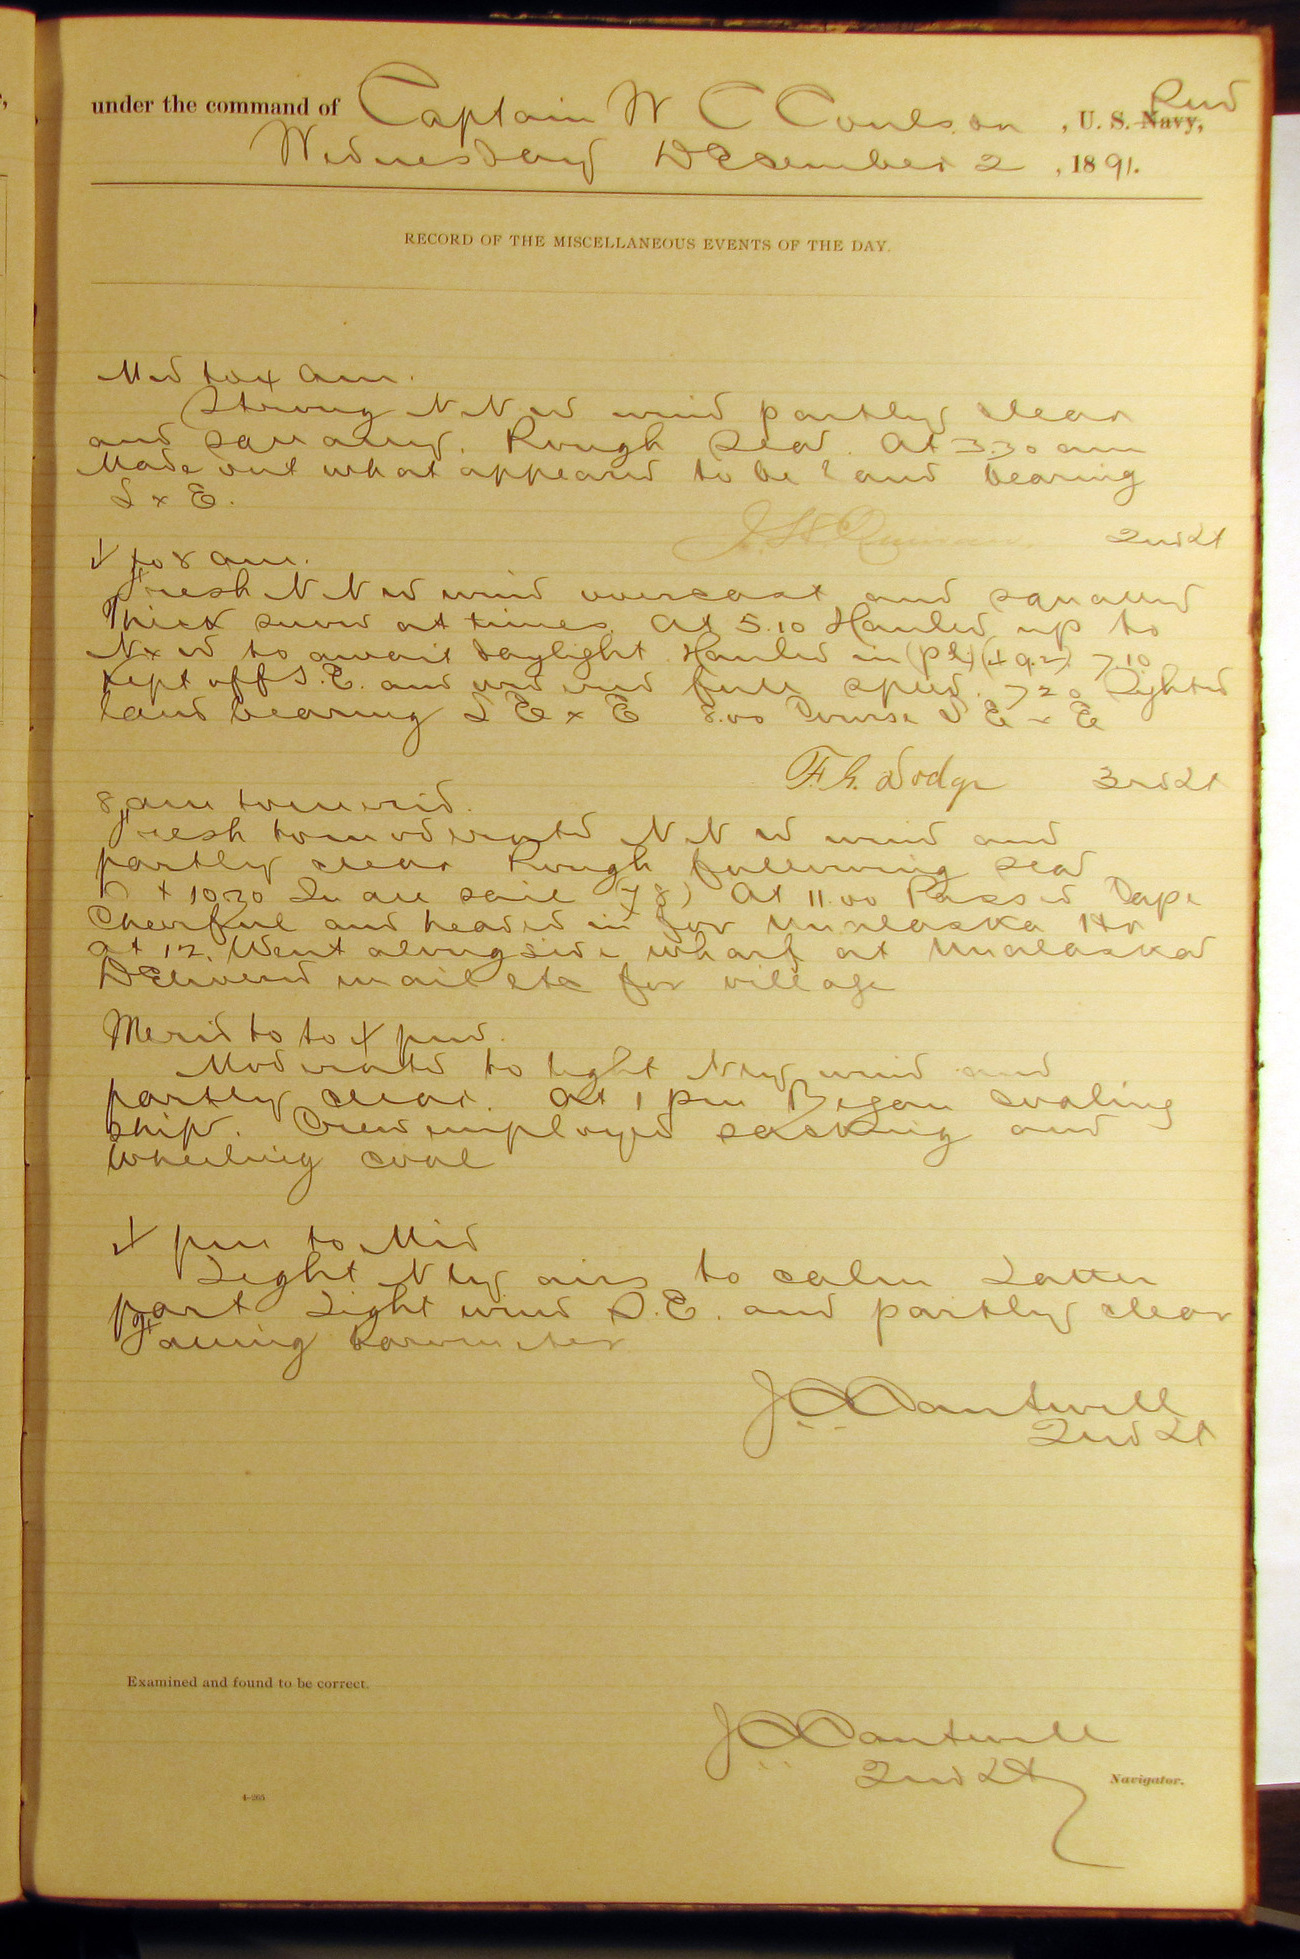 under the command of Captain W C Coulson, U. S. Navy, RM
Wednesday December 2, 1891.
RECORD OF THE MISCELLANEOUS EVENTS OF THE DAY.
Mid to 4 am.
Strong N N W wind partly clear
and squally. Rough Sea. At 3.30 am
Made out what appeared to be land bearing
S x E.
J. H. Quinan 2nd Lt
4 to 8 am.
Fresh N N W wind overcast and squally
Thick snow at times. At 5.10 Hauled up to
N x W to await daylight. Hauled in (Pl) (49.2) 7.10
Kept off S.E. and went full speed. 7 20 Sighted
land bearing S E x E 8.00 Course S E x E
F. G. Dodge 3rd Lt
8 am to merid.
Fresh to moderate N N W wind and
partly clear Rough following sea
At 10.30 In all sail (78) At 11.00 Passed Cape
Cheerful and headed in for Unalaska Hr
at 12. Went alongside wharf at Unalaska
Delivered mail etc for village
Merid to to 4 pm.
Moderate to light Nly wind and
partly clear. At 1 pm Began coaling
ship. Crew employed sacking and
wheeling coal
4 pm to Mid
Light Nly airs to calm Latter
part Light wind S.E. and partly clear
Falling barometer
J C Cantwell
2nd Lt
Examined and found to be correct.
J C Cantwell
2nd Lt Navigator.
4—265